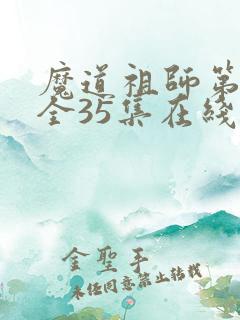 魔道祖师第
全35集在线
金聖手
未经同意禁止转载